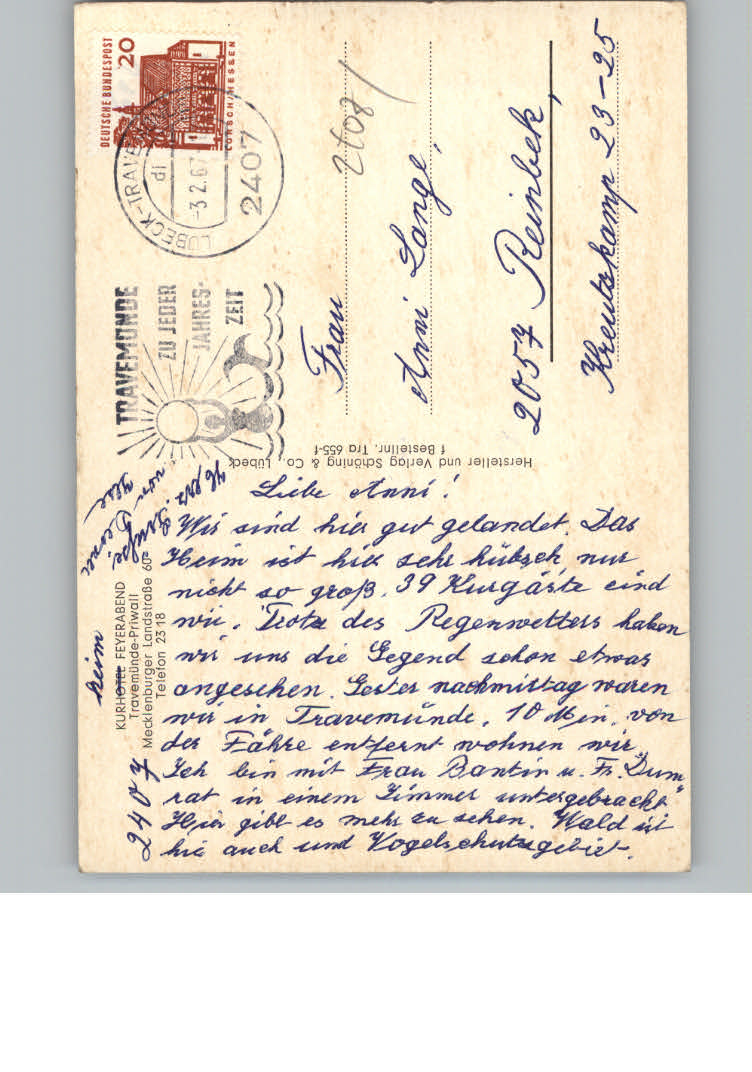 DEUTSCHE BUNDESPOST
20
LORSCH/HESSEN
LÜBECK-TRAVEMÜNDE
di
-3.2.67
2407
TRAVEMÜNDE
ZU JEDER
JAHRES-
ZEIT
2408/
Frau
Anni Lange,
2057 Reinbek,
Kreutzkamp 23-25
Hersteller und Verlag Schöning & Co., Lübeck
f Bestellnr. Tra 655-f
KURHOTEL FEYERABEND
Travemünde-Priwall
Mecklenburger Landstraße 60a
Telefon 23 18
heim
2407
Liebe Anni!
Wir sind hier gut gelandet. Das
Heim ist hier sehr hübsch nur
nicht so groß. 39 Kurgäste sind
wir. Trotz des Regenwetters haben
wir uns die Gegend schon etwas
angesehen. Gester nachmittag waren
wir in Travemünde. 10 Min. von
der Fähre entfernt wohnen wir.
Ich bin mit Frau Bantin u. Fr. Dum
rat in einem Zimmer untergebracht
Hier gibt es mehr zu sehen. Wald ist
hie auch und Vogelschutzgebiet.
Hzl. Grüße
von Deiner